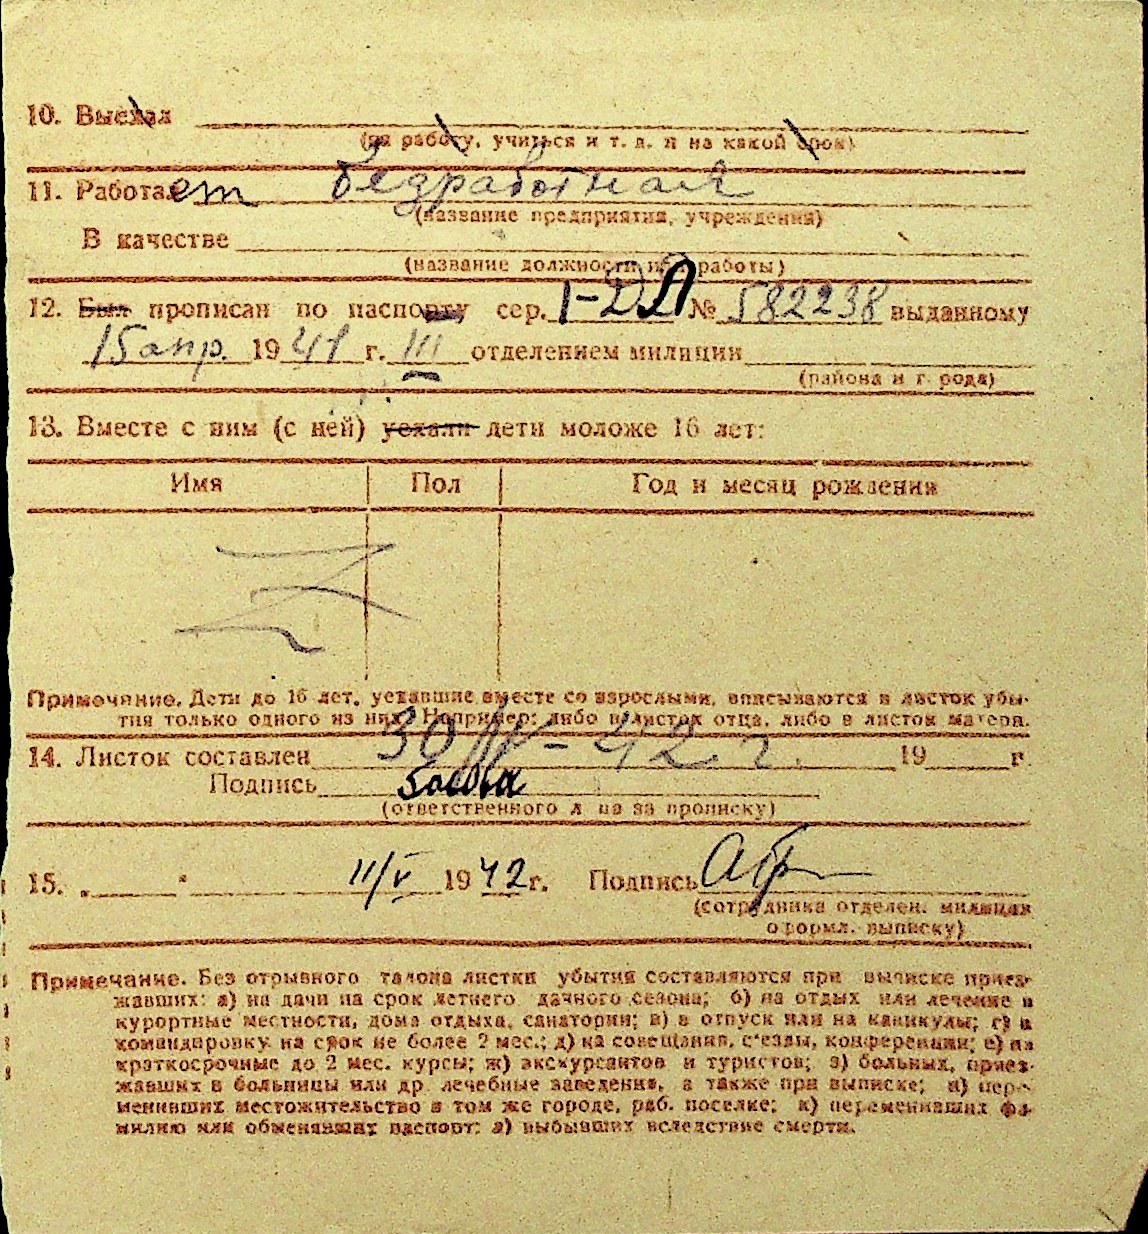 10. Выехал
(на работу, учиться и т. д. и на какой срок)
11. Работает безработная
(название предприятия, учреждения)
В качестве
(название должности или работы)
12. Был прописан по паспорту сер. I-ДЛ № 582238 выданному
15 апр. 1941 г. III отделением милиции
(района и города)
13. Вместе с ним (с ней) уехали дети моложе 16 лет:
Имя Пол Год и месяц рождения
Примечание. Дети до 16 лет, уехавшие вместе со взрослыми, вписываются в листок убы-
тия только одного из них. Например: либо в листок отца, либо в листок матери.
14. Листок составлен 30/IV-42 г. 19 г.
Подпись
(ответственного лица за прописку)
15. „ " 11/V 1942 г. Подпись
(сотрудника отделен. милиции
оформл. выписку)
Примечание. Без отрывного талона листки убытия составляются при выписке приез-
жавших: а) на дачи на срок летнего дачного сезона; б) на отдых или лечение в
курортные местности, дома отдыха, санатории; в) в отпуск или на каникулы; г) в
командировку на срок не более 2 мес.; д) на совещания, с'езды, конференции; е) на
краткосрочные до 2 мес. курсы; ж) экскурсантов и туристов; з) больных, приез-
жавших в больницы или др. лечебные заведения, а также при выписке; и) пере-
менивших местожительство в том же городе, раб. поселке; к) переменивших фа-
милию или обменявших паспорт; л) выбывших вследствие смерти.